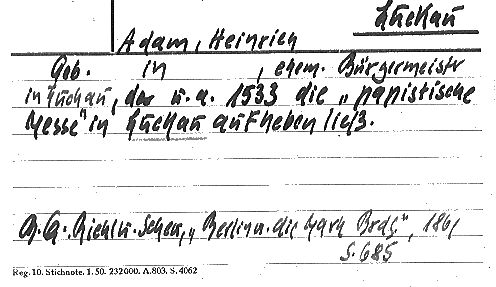 Luckau
Adam, Heinrich
Geb. in , ehem. Bürgermeistr
in Luckau, der u. a. 1533 die „papistische
Messe" in Luckau aufheben ließ.
Riehl u. Scheu, „Berlin u. die Mark Brdg", 1861
S. 685
Reg. 10. Stichnote. 1. 50. 232000. A.803. S. 4062